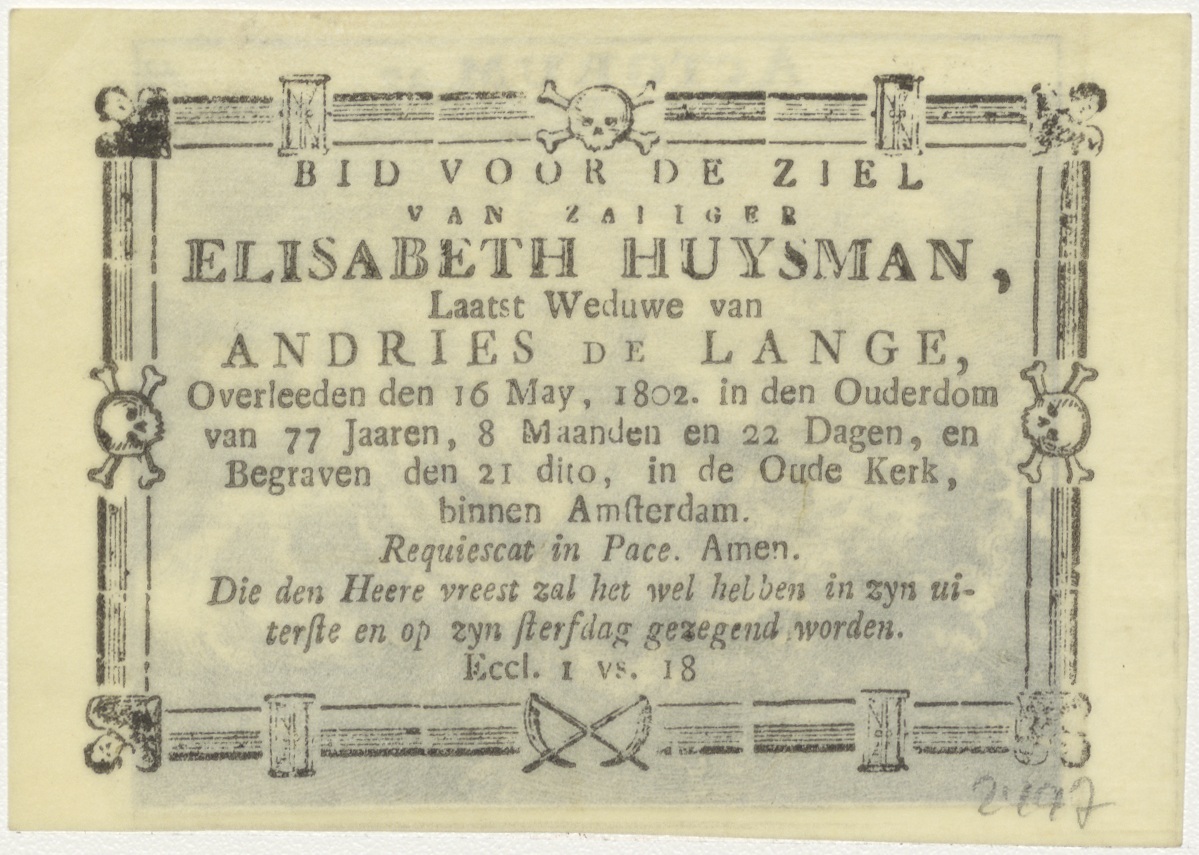 BID VOOR DE ZIEL
VAN ZALIGER
ELISABETH HUYSMAN,
Laatst Weduwe van
ANDRIES DE LANGE,
Overleeden den 16 May, 1802. in den Ouderdom
van 77 Jaaren, 8 Maanden en 22 Dagen, en
Begraven den 21 dito, in de Oude Kerk,
binnen Amſterdam.
Requiescat in Pace. Amen.
Die den Heere vreest zal het wel hebben in zyn ui-
terſte en op zyn ſterfdag gezegend worden.
Eccl. 1 vs. 18